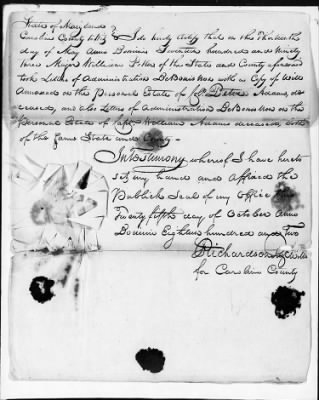 State of Maryland
Caroline County to Wit } I do hereby Certify that on the Thirteenth
day of May Anno Domini Seventeen hundred and ninety
three Major William Potter of the State and County aforesaid
took Letters of Administration DeBonis Non with a Copy of Will
Annexed on the Personal Estate of Peter Adams, de=
ceased, and also Letters of Administration DeBonis Non on the
Personal Estate of Capt. William Adams deceased, both
of the same State and County —
In testimony whereof I have hereto
set my hand and affixed the
Publick Seal of my Office this
Twenty fifth day of October Anno
Domini Eighteen hundred and Two
Richardson
for Caroline County